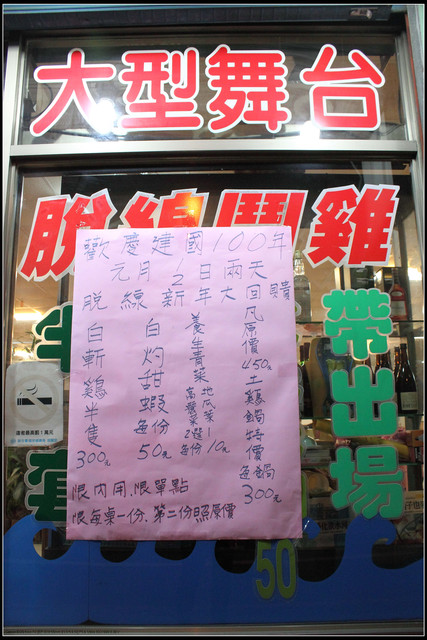 大型舞台
脫線鬪雞
歡慶建國100年
元月1.2日兩天
脫線新年大回饋
凡原價450元土雞鍋特價每鍋300元
養生青菜
地瓜葉
高麗菜2選1
每份10元
白灼甜蝦每份50元
白斬雞半隻300元
限內用.限單點
限每桌一份.第二份照原價
帶出場
50